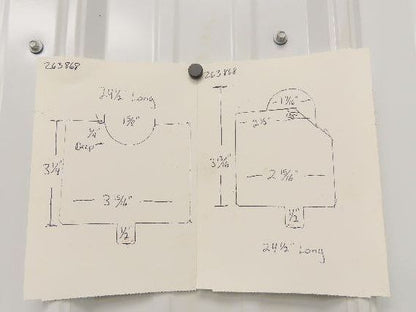 263868
24½" Long
1⅝"
¾"
Deep
3¾"
3 15/16"
½"
263868
1⅝"
2⅛"
2 15/16"
½"
24½" Long